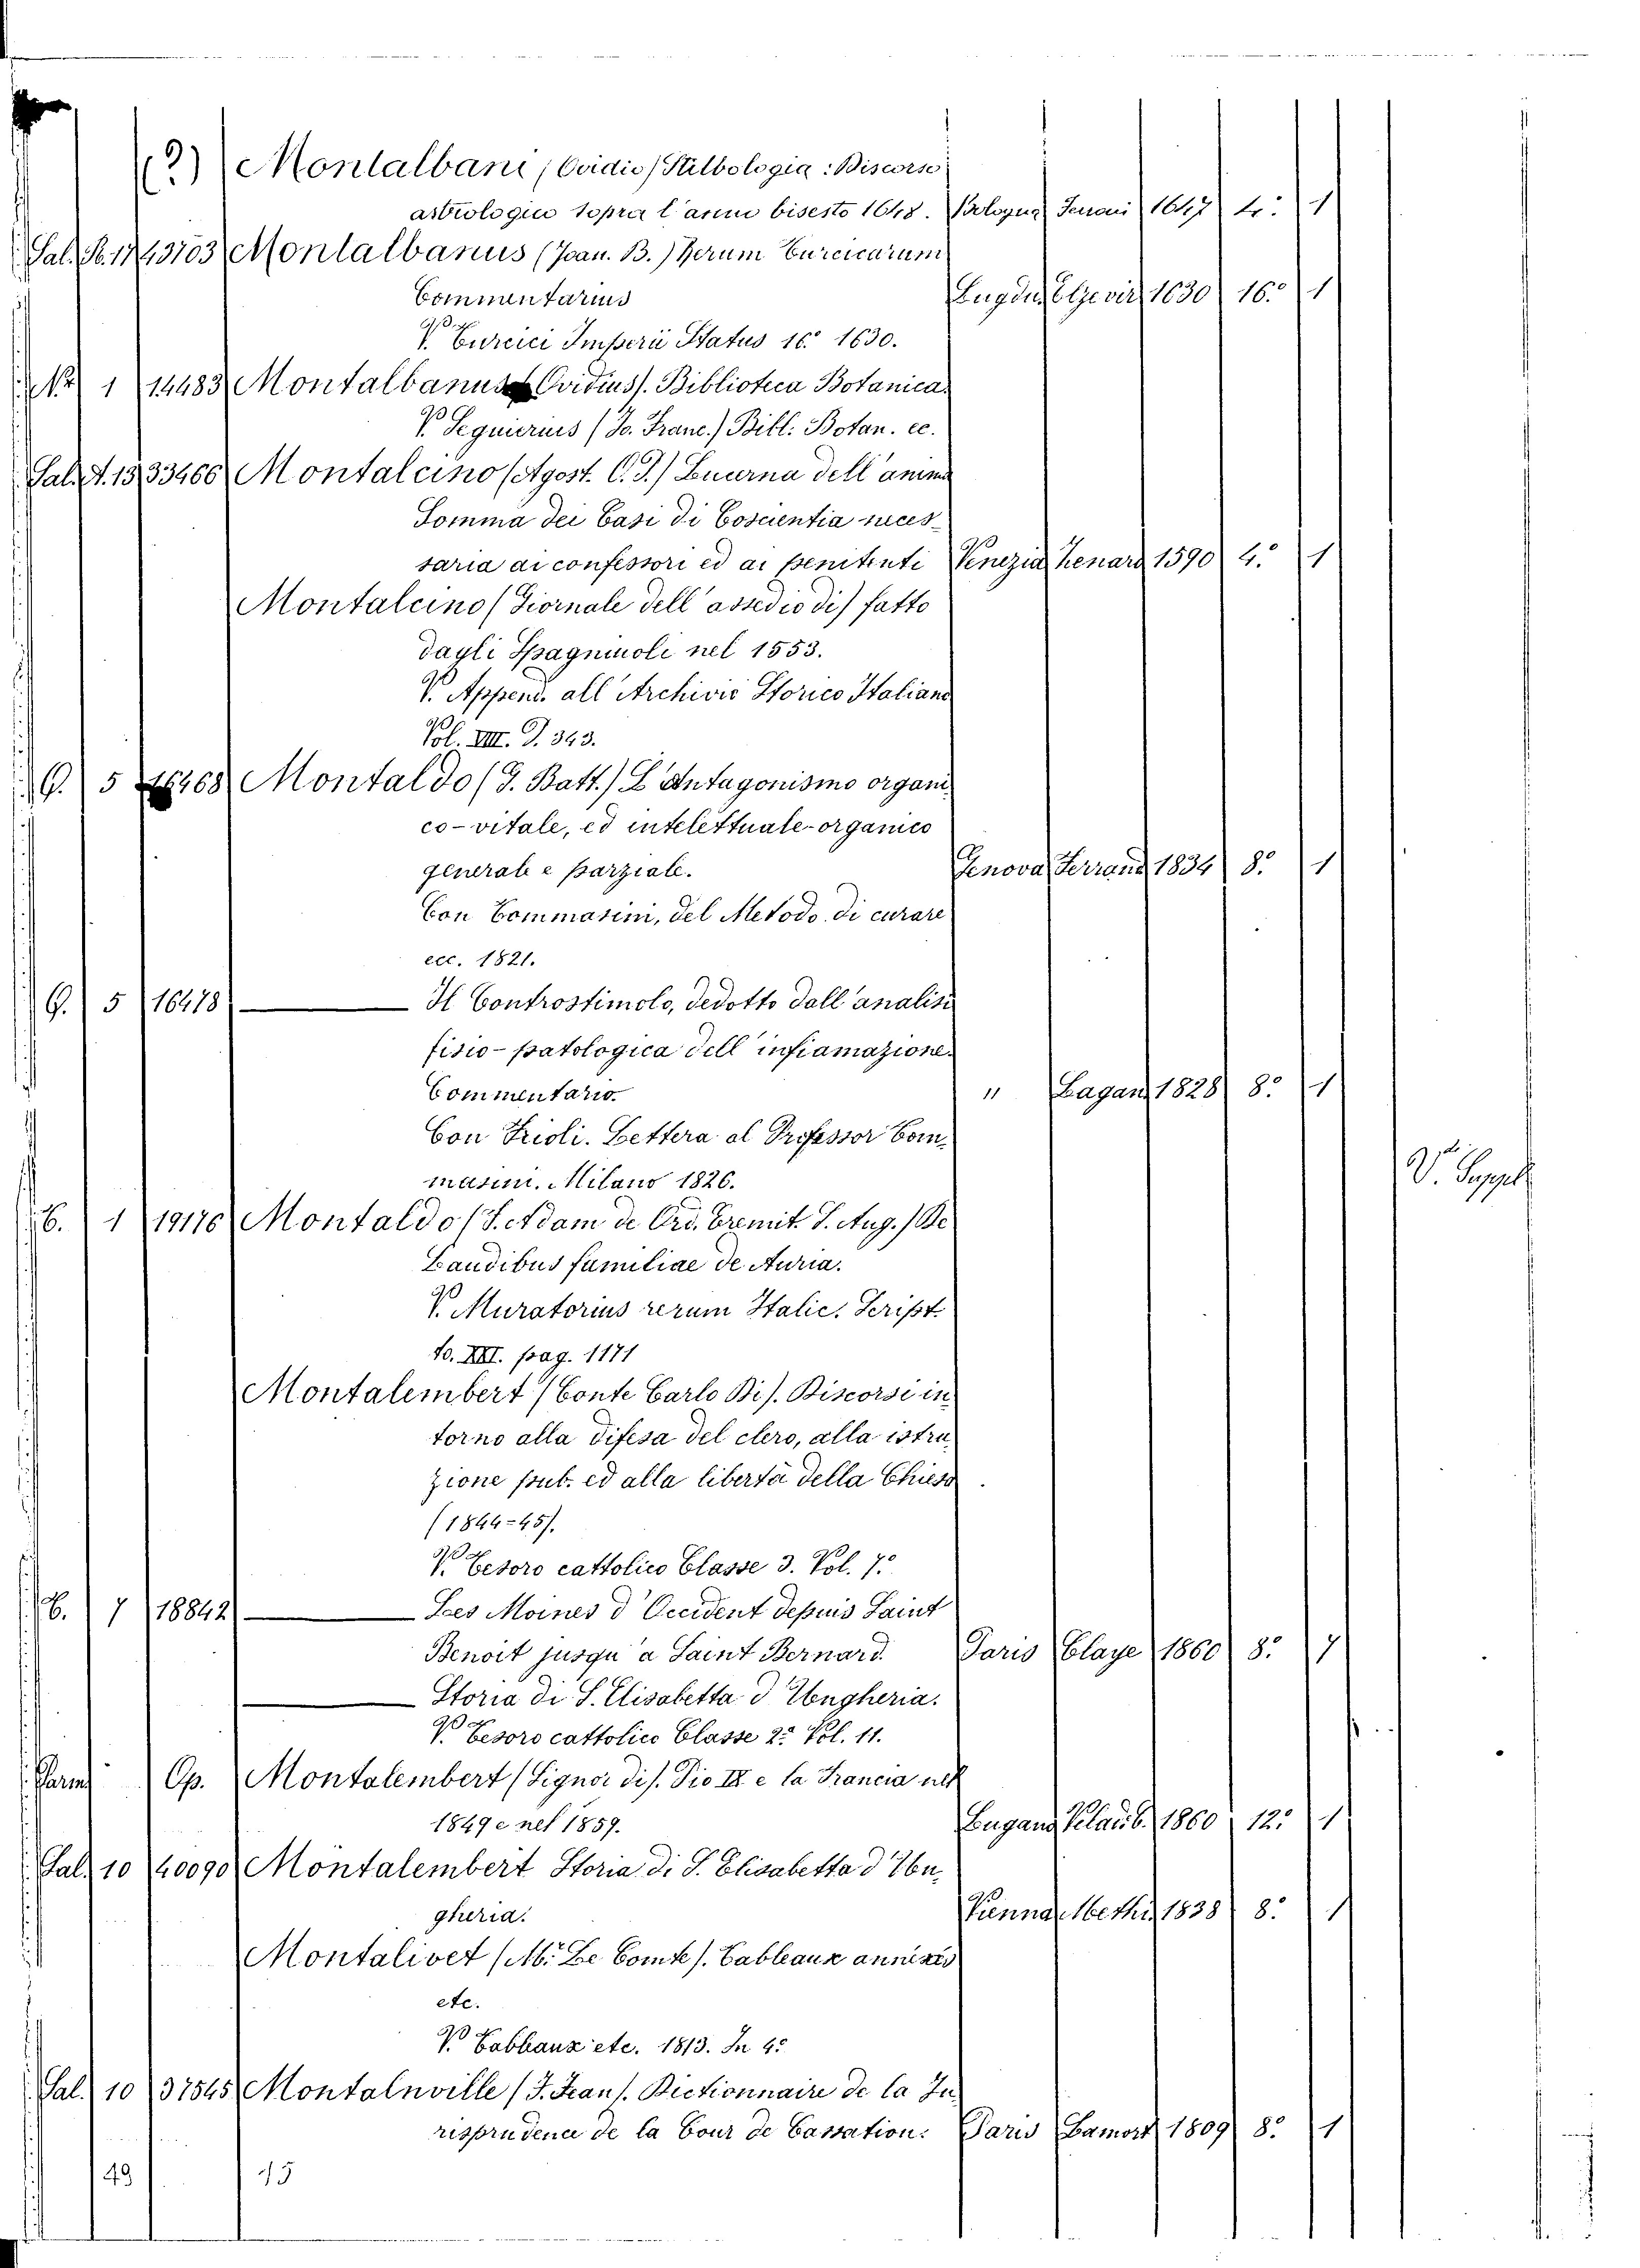 (?) Montalbani (Ovidio) Stilbologia: Discorso
astrologico sopra l'anno bisesto 1648. Bologna 1647 4.° 1
Sal. 43703 Montalbanus (Joan. B.) Rerum Turcicarum
Commentarius Lugdu. Elzevir 1630 16.° 1
V. Turcici Imperii Status 16.° 1630.
1 14483 Montalbanus Ovidius). Biblioteca Botanica.
V. Seguierius (Jo. Franc.) Bibl. Botan. ec.
Sal. A. 13 33466 Montalcino (Agost. C. J.) Lucerna dell'anima
Somma dei Casi di Coscientia neces-
saria ai confessori ed ai penitenti Venezia Zenaro 1590 4.° 1
Montalcino (Giornale dell'assedio di) fatto
dagli Spagnuoli nel 1553.
V. Append. all'Archivio Storico Italiano
Vol. VIII. P. 343.
G. 5 16468 Montaldo (G. Batt.) L'Antagonismo organi-
co-vitale, ed intelettuale-organico
generale e parziale. Genova Ferrando 1834 8.° 1
Con Tommasini, del Metodo di curare
ecc. 1821.
G. 5 16478 ——— Il Controstimolo, dedotto dall'analisi
fisio-patologica dell'infiamazione.
Commentario. " Pagano 1828 8.° 1
Con Trioli. Lettera al Professor Tom-
masini. Milano 1826.
V. Suppl.
C. 1 19176 Montaldo (F. Adam de Ord. Eremit. S. Aug.) De
Laudibus familiae de Auria.
V. Muratorius rerum Italic. Script.
to. XXI. pag. 1171
Montalembert (Conte Carlo Di). Discorsi in-
torno alla difesa del clero, alla istru-
zione pub. ed alla libertà della Chiesa
(1844-45).
V. Tesoro cattolico Classe 3. Vol. 7.°
C. 7 18842 ——— Les Moines d'Occident depuis Saint
Benoit jusqu'a Saint Bernard Paris Claye 1860 8.° 7
——— Storia di S. Elisabetta d'Ungheria.
V. Tesoro cattolico Classe 2.ª Vol. 11.
Op. Montalembert (Signor di). Pio IX e la Francia nel
1849 e nel 1859. Lugano 1860 12.° 1
Sal. 10 40090 Montalembert Storia di S. Elisabetta d'Un-
gheria. Vienna Methi. 1838 8.° 1
Montalivet (M.r Le Comte). Tableaux annexés
etc.
V. Tableaux etc. 1813. In 4.°
Sal. 10 37545 Montalnville (F. Jean). Dictionnaire de la Ju-
risprudence de la Cour de Cassation. Paris Lamort 1809 8.° 1
49 15